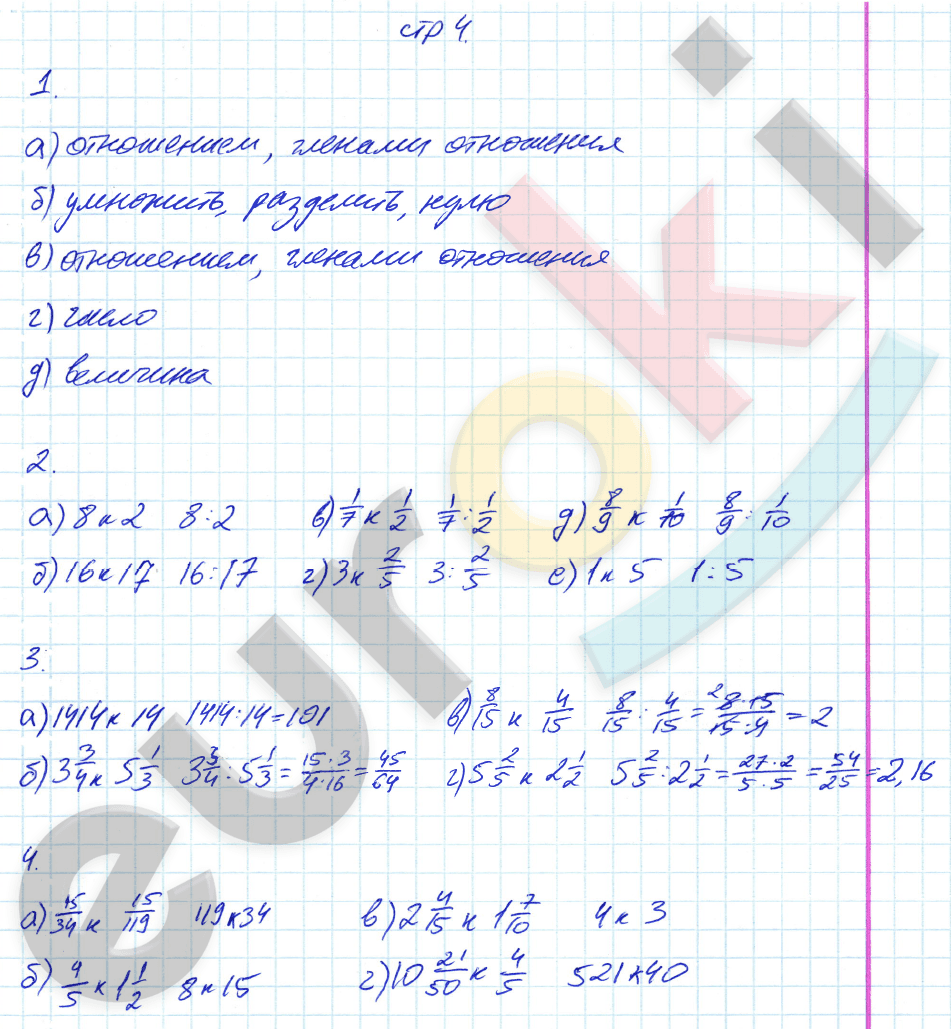 стр 4.
1.
а) отношением, членами отношения
б) умножить, разделить, нулю
в) отношением, членами отношения
г) число
д) величина
2.
а) 8 к 2 8:2 в) 1/7 к 1/2 1/7 : 1/2 д) 8/9 к 1/10 8/9 : 1/10
б) 16 к 17 16:17 г) 3 к 2/5 3 : 2/5 е) 1 к 5 1:5
3.
а) 1414 к 14 1414:14=101 в) 8/15 к 4/15 8/15 : 4/15 = 2 8·15/15·4 = 2
б) 3 3/4 к 5 1/3 3 3/4 : 5 1/3 = 15·3/4·16 = 45/64 г) 5 2/5 к 2 1/2 5 2/5 : 2 1/2 = 27·2/5·5 = 54/25 = 2,16
4.
а) 15/34 к 15/119 119 к 34 в) 2 4/15 к 1 7/10 4 к 3
б) 4/5 к 1 1/2 8 к 15 г) 10 21/50 к 4/5 521 к 40
euroki